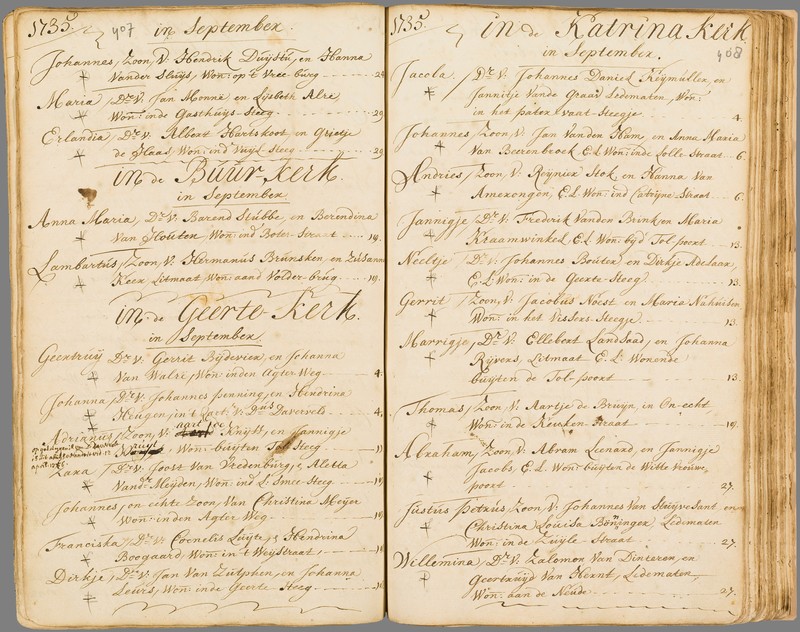 1735. 407 in September.
Johannes, Zoon, V. Hendrik Duijstu, en Hanna
Vander Sluijs, Won: op 't Vree-burg 29
Maria, Dr. V. Jan Monné en Lijsbeth Alré
Won: inde Gasthuijs-Steeg 29
Erlandia, Dr. V. Albert Hartskoot, en Grietje
de Haas, Won: ind Vuijl-Steeg 29
in de Buur-kerk.
in September
Anna Maria, Dr. V. Barend Stubbe, en Berendina
Van Houten, Won: ind Boter-Straat 19.
Lambartus, Zoon, V. Hermanus Brunsken, en Zusanna
Keer Litmaat, Won: aand Volder-brug 19.
in de Geerte-Kerk.
in September
Geertruij Dr. V. Gerrit Bijdevier, en Johanna
Van Walré, Won: inden Agter-Weg 4.
Johanna, Dr. V. Johannes penning, en Hendrina
Heugen, in 't V. Davervels 4.
Adrianus, Zoon, V. Knijff, en Jannigje
Won: buijten Steeg 11
Zara, Dr. V. Joost Van Vredenburg, & Aletta
Vander Meijden, Won: ind L: Smee-Steeg 18
Johannes, on echte Zoon, Van Christina Meijer
Won: inden Agter Weg 18
Franciska, Dr. V. Cornelis Luijte, & Hendrina
Boogaard, Won: in 't Weijstraat 18
Dirkje, Dr. V. Jan Van Zutphen, en Johanna
Leurs, Won: inde Geerte-Steeg
1735. in de Katrina kerk
in September. 408
Jacoba, Dr. V. Johannes Daniel Reijmuller, en
Jannitje Vande Graaf Ledematen, Won:
in het pater vaat-Steegje 4.
Johannes, Zoon, V. Jan Vanden Ham, en Anna Maria
Van Beerenbroek E.L. Won: inde Lolle-Straat 6.
Andries, Zoon, V. Reijnier Stok, en Hanna Van
Amerongen, E.L. Won: ind Catrijne Straat 6.
Jannigje, Dr. V. Fredrik Vanden Brink en Maria
Kraamwinkel E.L. Won: byd Tol-poort 13.
Neeltje, Dr. V. Johannes Bouter, en Dirkje Adelaar,
E.L. Won: in de Geerte-Steeg 13.
Gerrit, Zoon, V. Jacobus Noest en Maria Nahuisen
Won: in het Vissers Steegje 13.
Marrigje, Dr. V. Ellebert Landsaad, en Johanna
Rijvers, Litmaat E.L. Wonende
buijten de Tol-poort 13.
Thomas, Zoon, V. Aartje de Bruijn, in On-echt
Won: inde Keuken-straat 19.
Abraham, Zoon, V. Abram Leenard, en Jannigje
Jacobs, E.L. Won: buijten de Witte Vrouwe
poort 27.
Justus petrus, Zoon, V. Johannes Van Stuijve Sant en
Christina Louisa Böninger, Ledematen
Won: inde Zuijle-Straat 27.
Willemina, Dr. V. Zalomon Van Dinteren, en
Geertruijd Van Hernt, Ledematen
Won: aan de Neude 27.